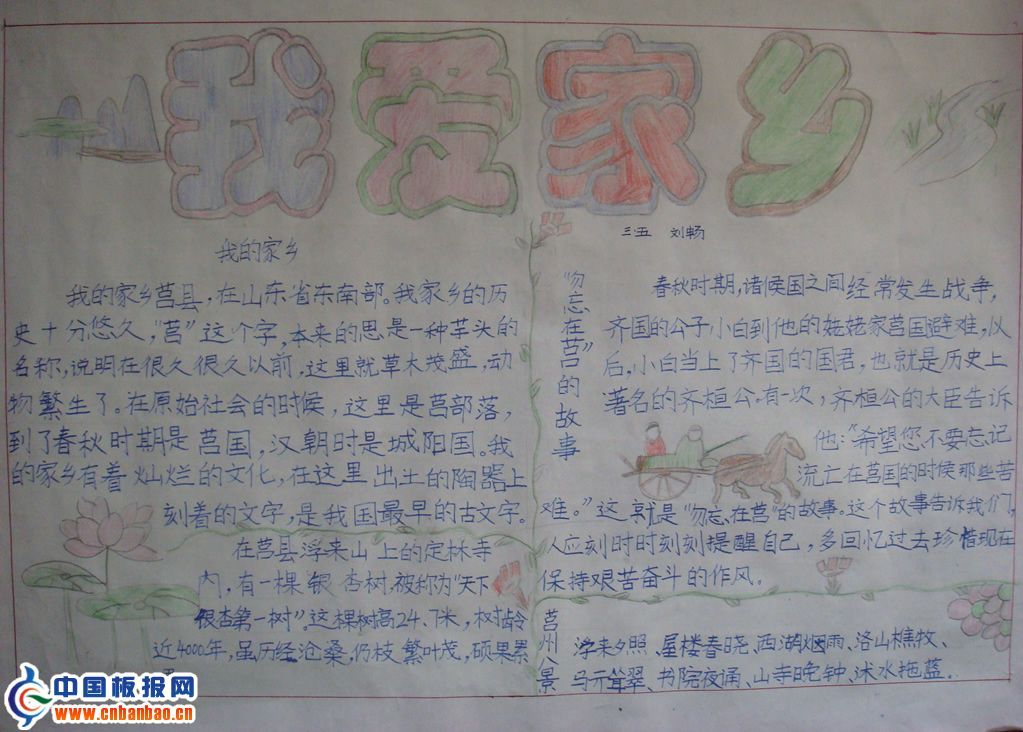 我爱家乡
三.五 刘畅
我的家乡
我的家乡莒县，在山东省东南部。我家乡的历
史十分悠久，“莒”这个字，本来的思是一种芋头的
名称，说明在很久很久以前，这里就草木茂盛，动
物繁生了。在原始社会的时候，这里是莒部落，
到了春秋时期是莒国，汉朝时是城阳国。我
的家乡有着灿烂的文化，在这里出土的陶器上
刻着的文字，是我国最早的古文字。
在莒县浮来山上的定林寺
内，有一棵银杏树，被称为“天下
银杏第一树”。这棵树高24.7米，树龄
近4000年，虽历经沧桑，仍枝繁叶茂，硕果累
“勿忘在莒”的故事
春秋时期，诸候国之间经常发生战争，
齐国的公子小白到他的姥姥家莒国避难，以
后，小白当上了齐国的国君，也就是历史上
著名的齐桓公。有一次，齐桓公的大臣告诉
他：“希望您不要忘记
流亡在莒国的时候那些苦
难。”这就是“勿忘在莒”的故事。这个故事告诉我们，
人应刻时时刻刻提醒自己，多回忆过去珍惜现在
保持艰苦奋斗的作风。
莒州八景
浮来夕照、屋楼春晓、西湖烟雨、洛山樵牧、
马亓耸翠、书院夜诵、山寺晚钟、沭水拖蓝.
中国板报网
www.cnbanbao.cn